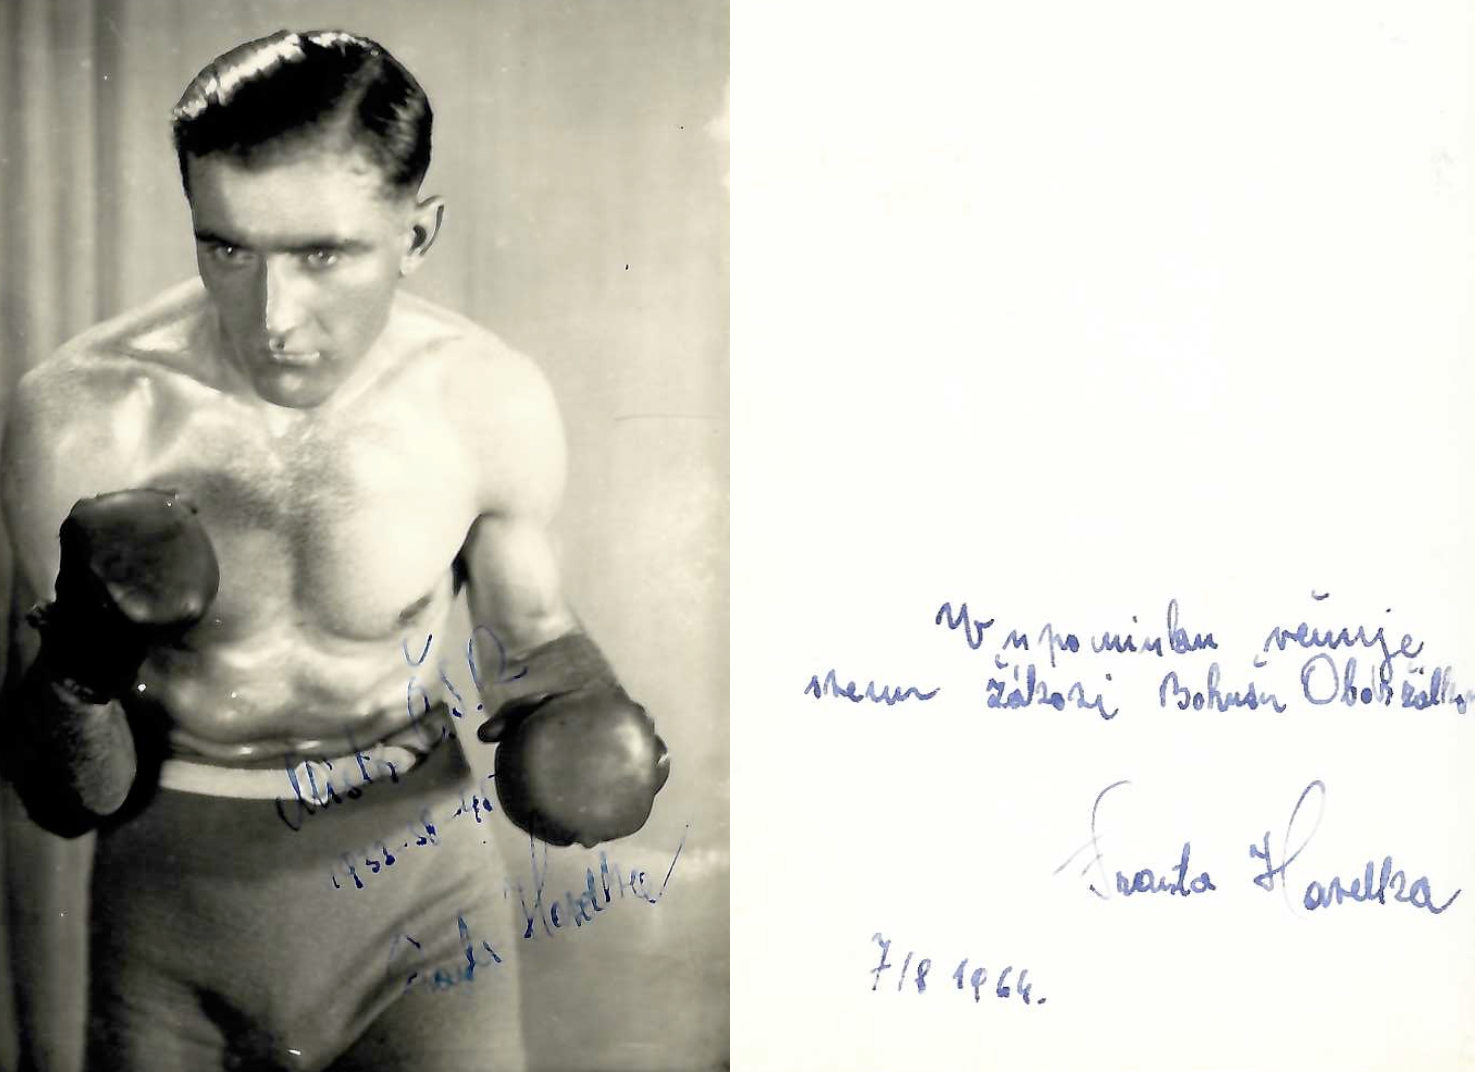 Mistr ČSR
Franta Havelka
V upomínku věnuje
svému žákovi Bohušu Obdržálko
Franta Havelka
7/8 1964.